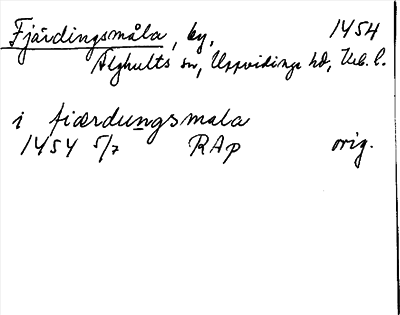 Fjärdingsmåla, by, 1454
Älghults sn, Uppvidinge hd, Krb. l.
i fiærdungsmala
1454 5/7 RAp orig.